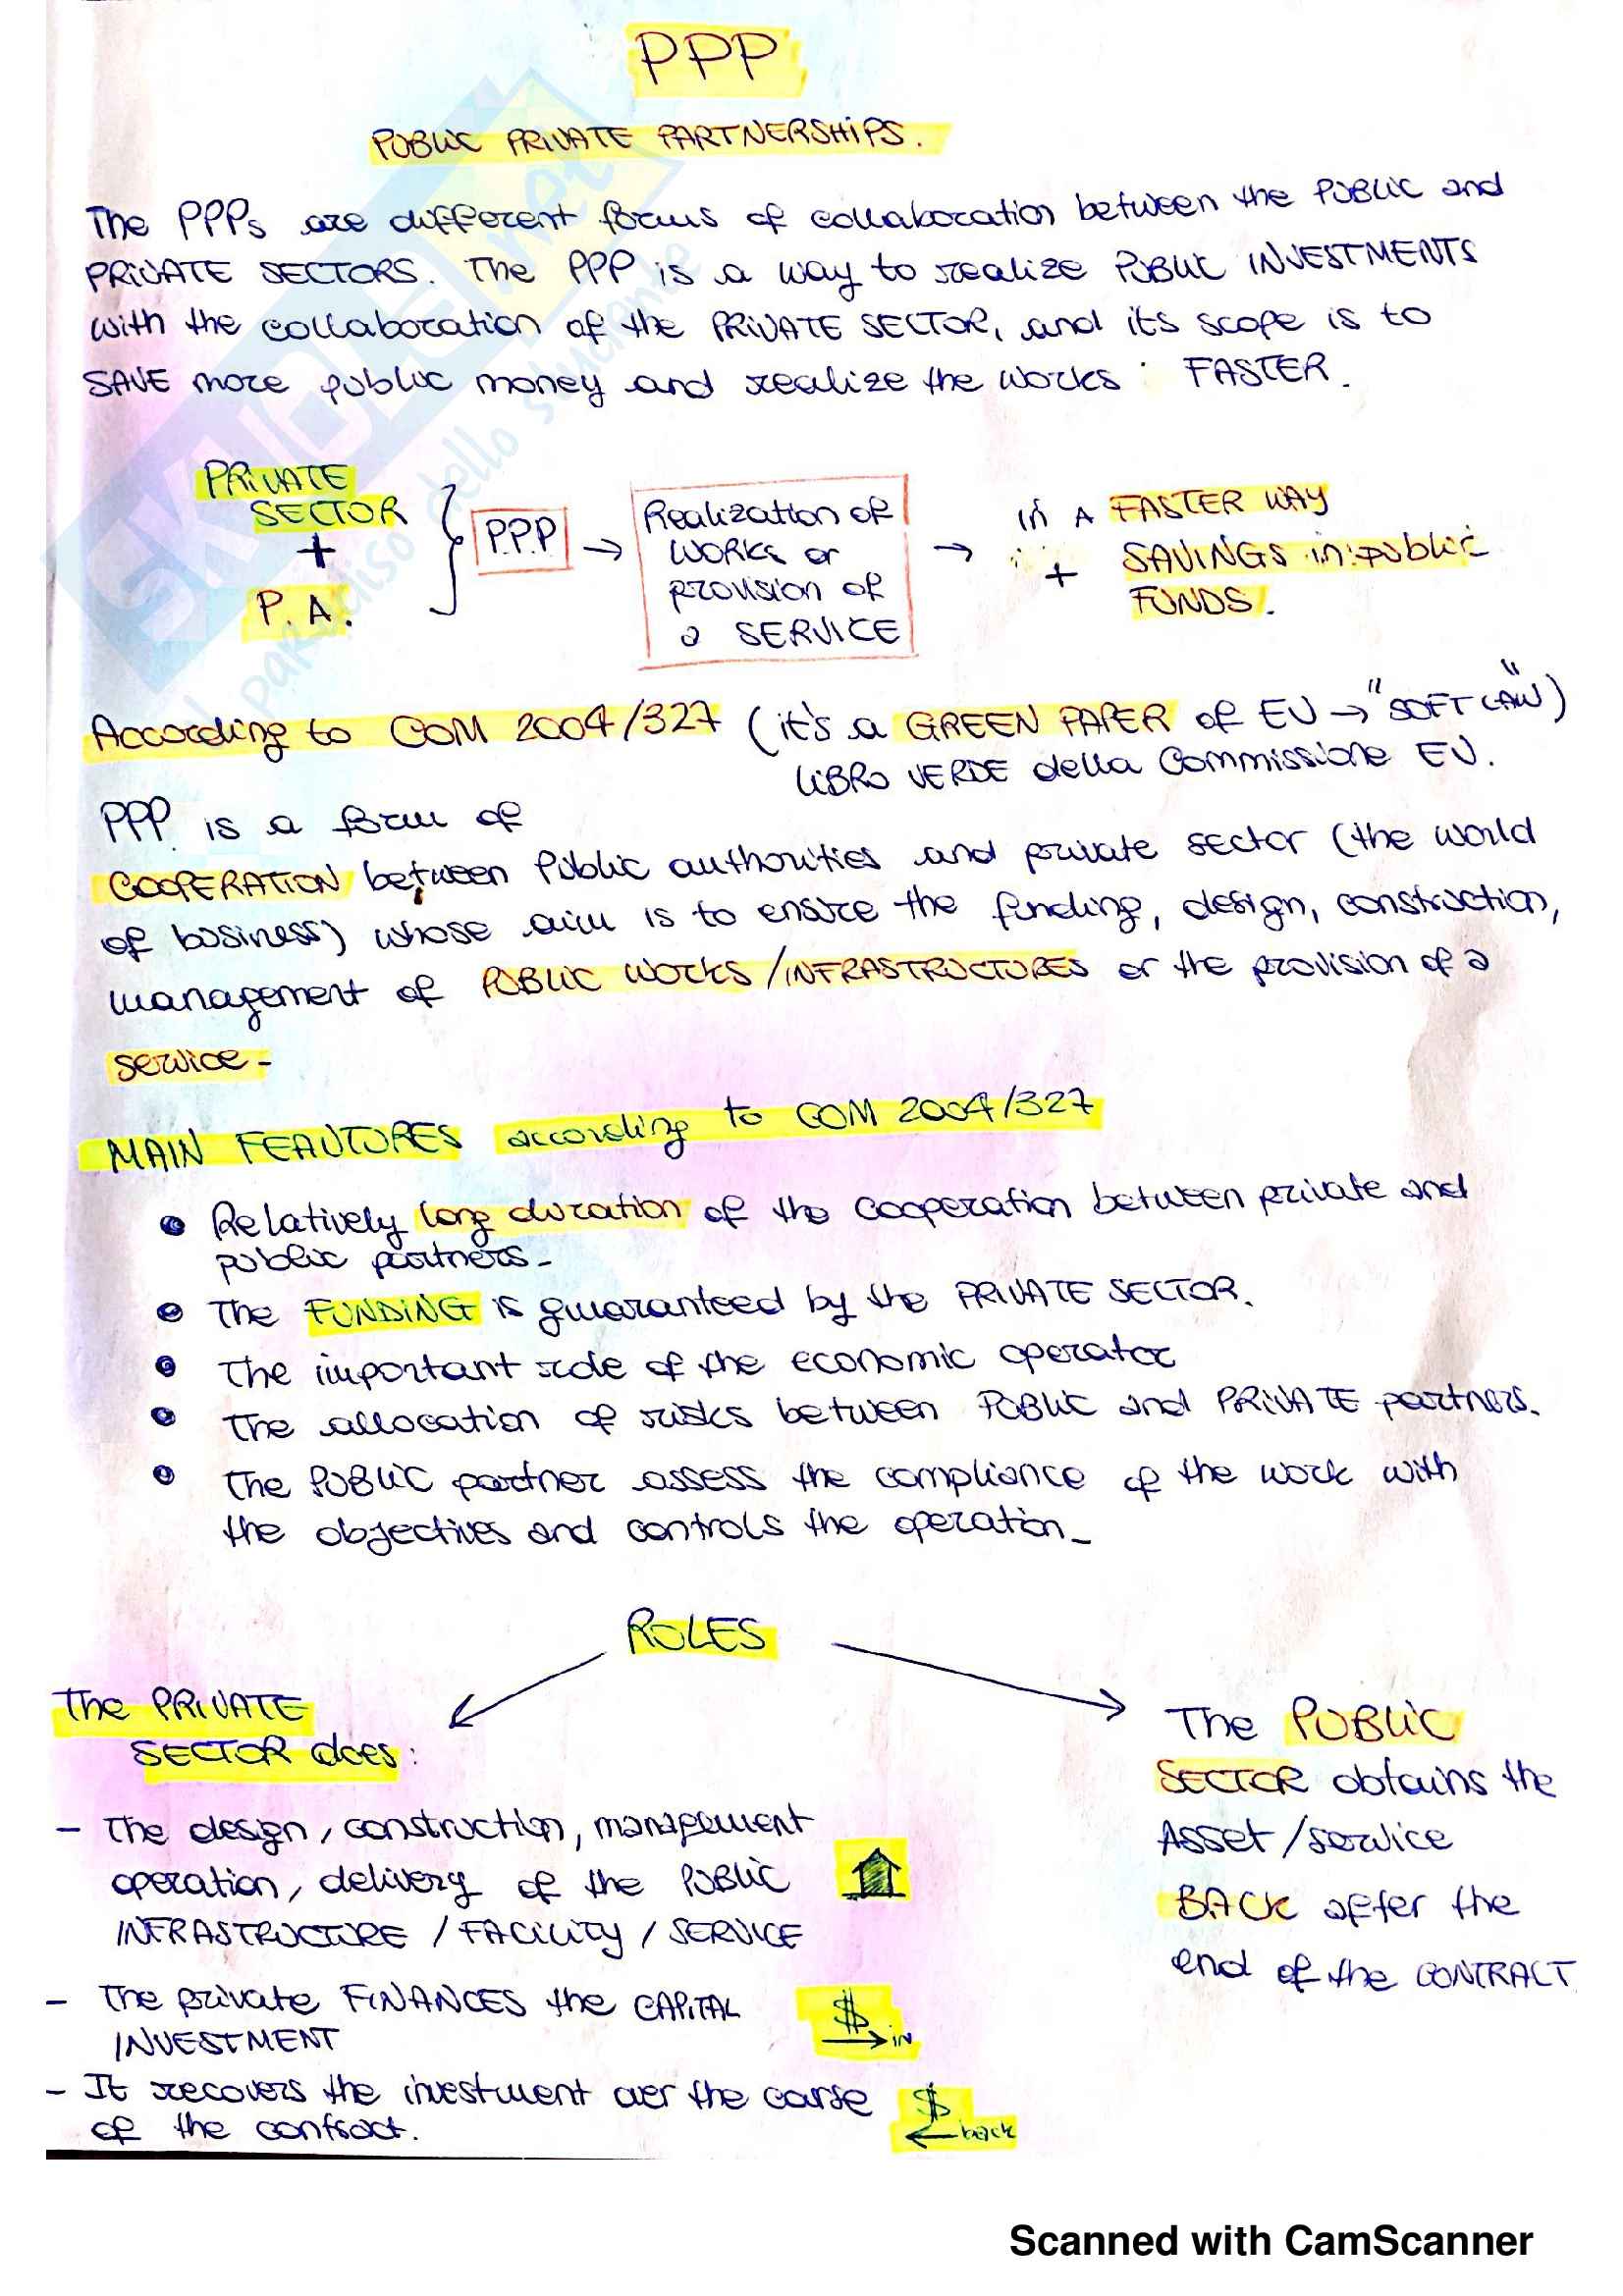 PPP
PUBLIC PRIVATE PARTNERSHIPS.
The PPPs are different forms of collaboration between the PUBLIC and
PRIVATE SECTORS. The PPP is a way to realize PUBLIC INVESTMENTS
with the collaboration of the PRIVATE SECTOR, and its scope is to
SAVE more public money and realize the works FASTER.
PRIVATE
SECTOR
+
P.A.
P.P.P
→
Realization of
WORKS or
provision of
a SERVICE
→
in A FASTER WAY
+ SAVINGS in public
FUNDS.
According to COM 2004/327 (it's a GREEN PAPER of EU → "SOFT LAW")
LIBRO VERDE della Commissione EU.
PPP is a form of
COOPERATION between Public authorities and private sector (the world
of business) whose aim is to ensure the funding, design, construction,
management of PUBLIC WORKS/INFRASTRUCTURES or the provision of a
service-
MAIN FEAUTURES according to COM 2004/327
• Relatively long duration of the cooperation between private and
public partners-
• The FUNDING is guaranteed by the PRIVATE SECTOR.
• The important role of the economic operator
• The allocation of risks between PUBLIC and PRIVATE partners.
• The PUBLIC partner assess the compliance of the work with
the objectives and controls the operation-
ROLES
The PRIVATE
SECTOR does:
- The design, construction, management
operation, delivery of the PUBLIC
INFRASTRUCTURE / FACILITY / SERVICE
- The private FINANCES the CAPITAL
INVESTMENT
$
→ IN
- It recovers the investment over the course
of the contract.
$
← back
The PUBLIC
SECTOR obtains the
Asset/service
BACK after the
end of the CONTRACT
SKUOLA.net
il paradiso dello studente
Scanned with CamScanner